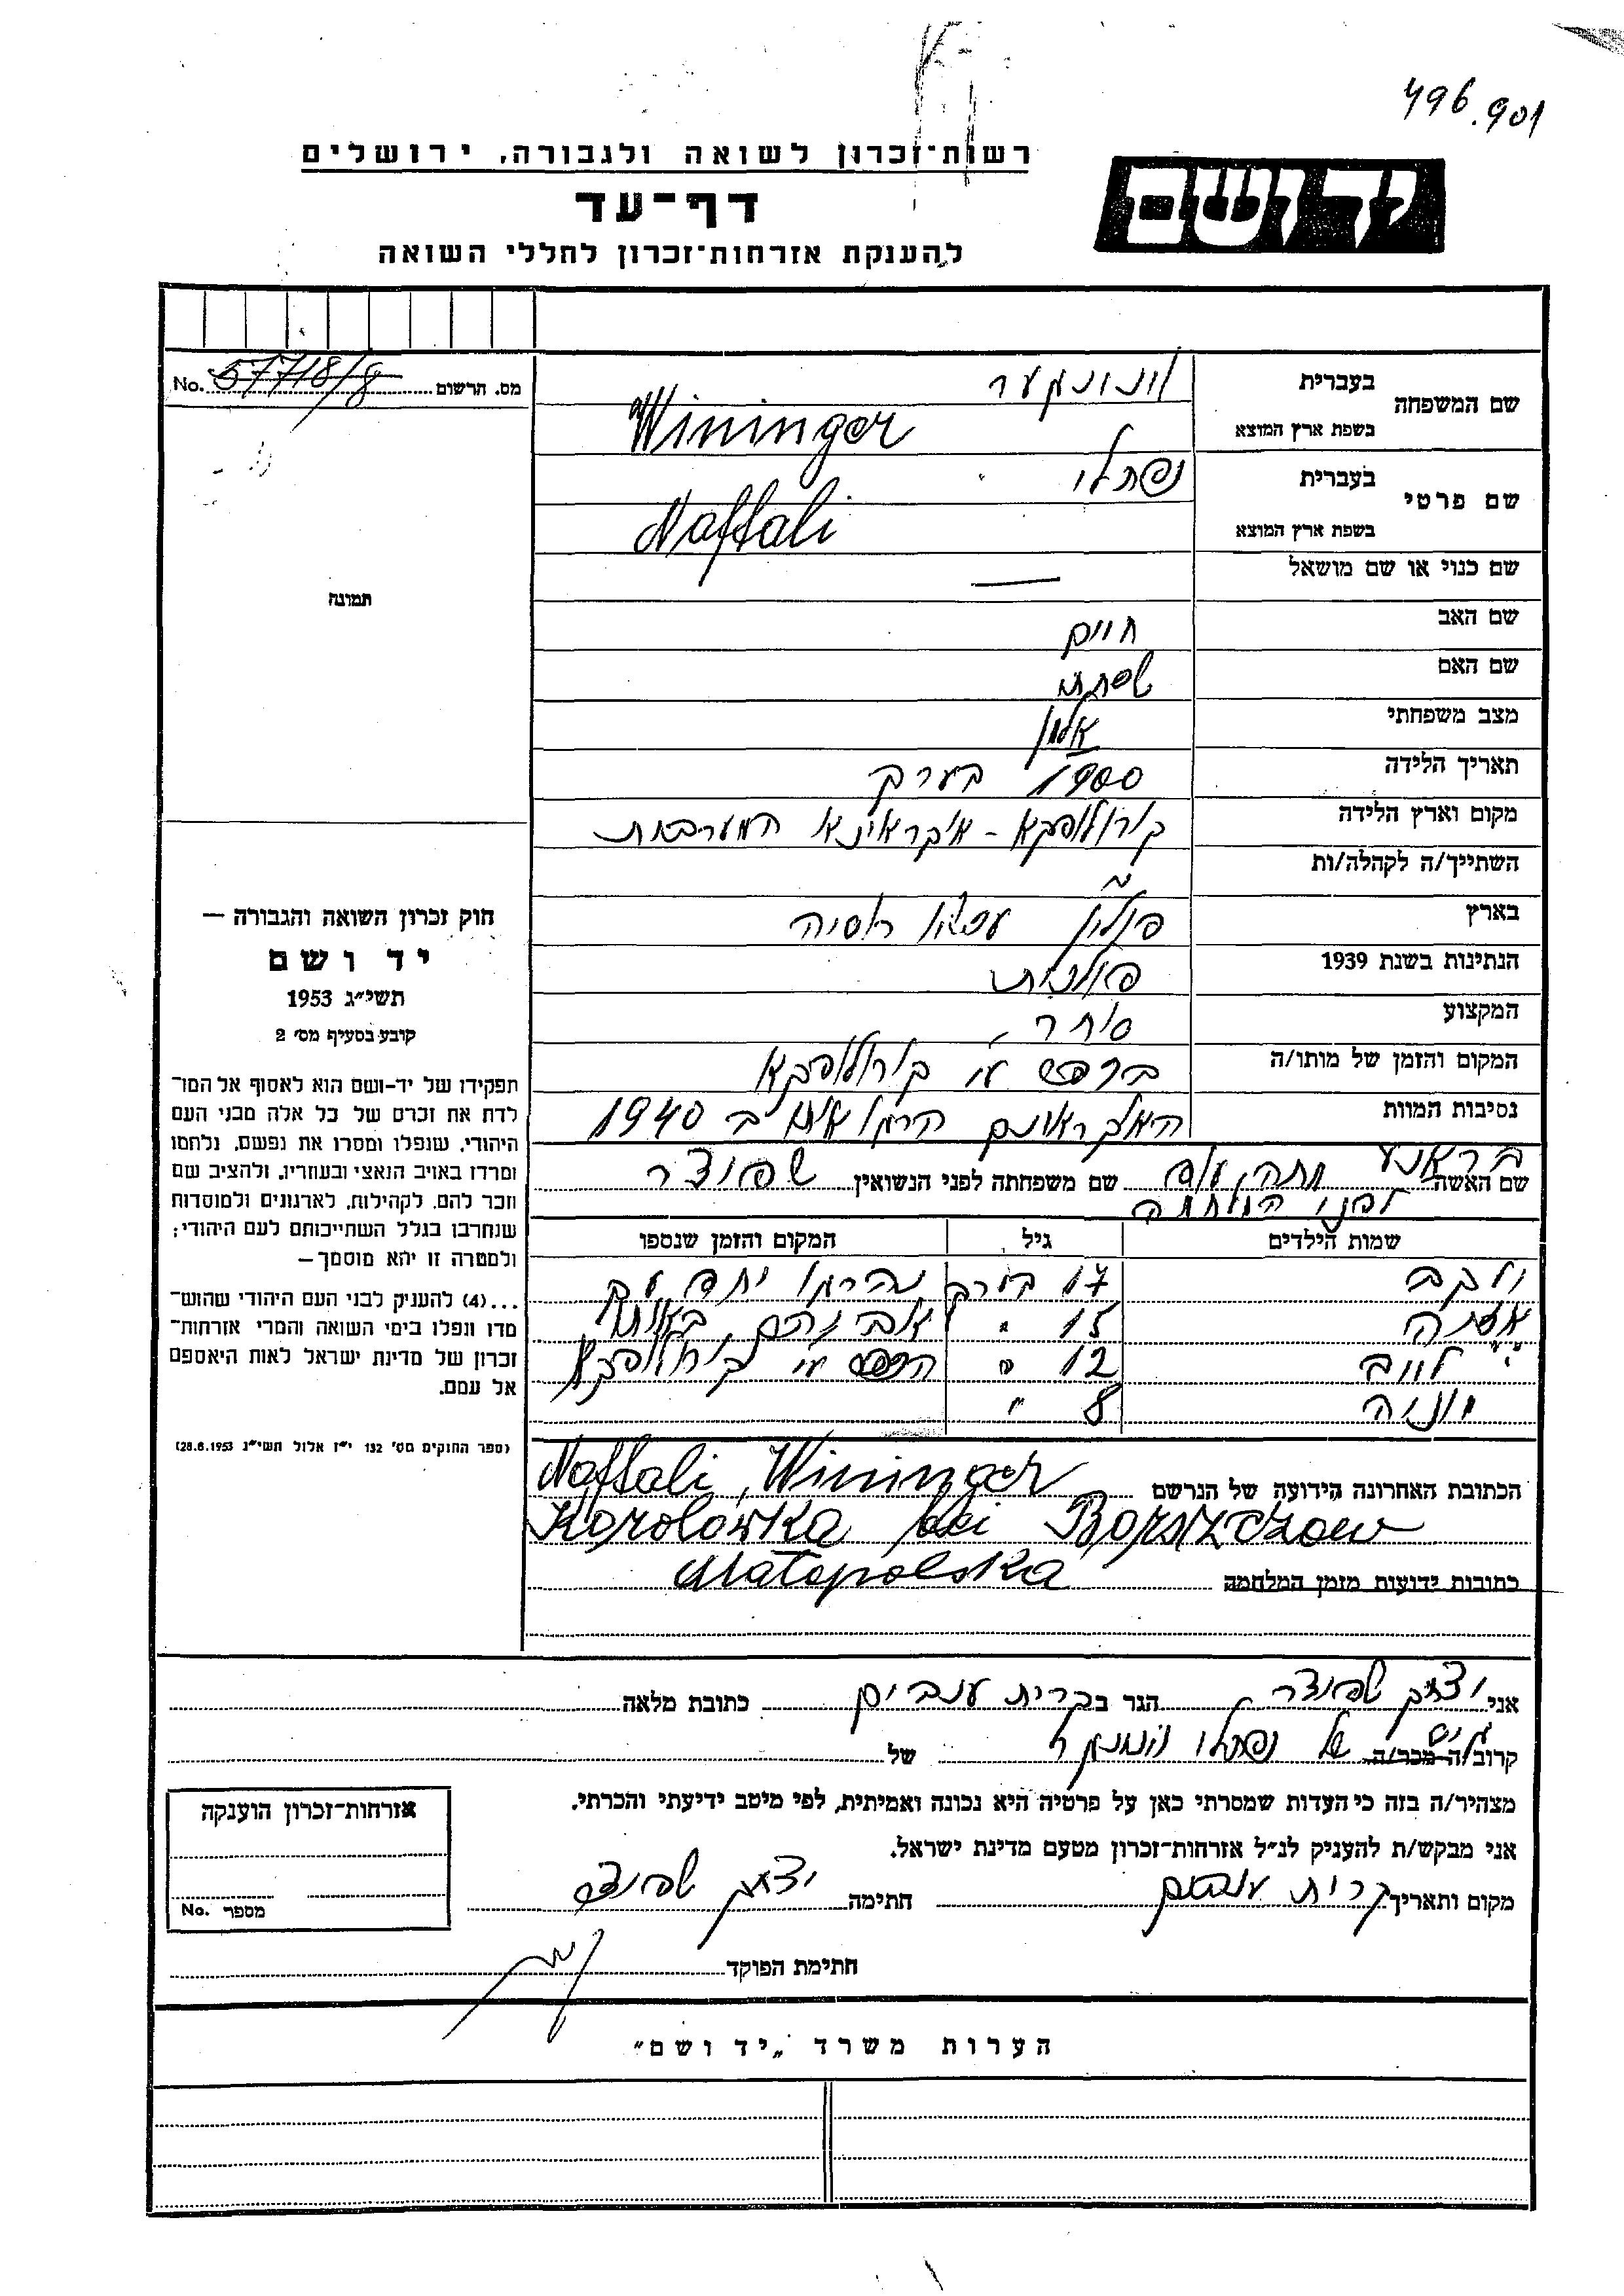 496.901
רשות־זכרון לשואה ולגבורה, ירושלים
יד ושם
דף־עד
להענקת אזרחות־זכרון לחללי השואה
מס. הרשום 57718/8 No.
שם המשפחה
בעברית ווינינגער
בשפת ארץ המוצא Wininger
שם פרטי
בעברית נפתלי
בשפת ארץ המוצא Naftali
שם כנוי או שם מושאל —
שם האב חיים
שם האם
מצב משפחתי אלמן
תאריך הלידה 1900 בערך
מקום וארץ הלידה קורולופקא - אוקראינא המערבית
השתייך/ה לקהלה/ות "
בארץ פולין עכשיו רוסיה
הנתינות בשנת 1939 פולנית
המקצוע סוחר
המקום והזמן של מותו/ה ע"י קורולופקא
נסיבות המוות האוקראינים הרגו אותו ב 1940
שם האשה מתה עוד לפני המלחמה שם משפחתה לפני הנשואין שפוצר
שמות הילדים גיל המקום והזמן שנספו
17 בערך נהרגו יחד עם
15 " אביהם
12 " ע"י קורולופקא
8 "
הכתובת האחרונה הידועה של הנרשם Naftali, Wininger
Korolówka Borszczow
כתובות ידועות מזמן המלחמה Małopolska
תמונה
חוק זכרון השואה והגבורה —
יד ושם
תשי״ג 1953
קובע בסעיף מס׳ 2
תפקידו של יד־ושם הוא לאסוף אל המו־
לדת את זכרם של כל אלה מבני העם
היהודי, שנפלו ומסרו את נפשם, נלחמו
ומרדו באויב הנאצי ובעוזריו, ולהציב שם
וזכר להם, לקהילות, לארגונים ולמוסדות
שנחרבו בגלל השתייכותם לעם היהודי;
ולמטרה זו יהא מוסמך—
...(4) להעניק לבני העם היהודי שהוש־
מדו ונפלו בימי השואה והמרי אזרחות־
זכרון של מדינת ישראל לאות היאספם
אל עמם.
(ספר החוקים מס׳ 132 י״ז אלול תשי״ג 28.8.1953)
אני יצחק שפוצר הגר בקרית ענבים כתובת מלאה
קרוב/ה מכר/ה גיס של נפתלי וינינגר של
מצהיר/ה בזה כי העדות שמסרתי כאן על פרטיה היא נכונה ואמיתית, לפי מיטב ידיעתי והכרתי.
אני מבקש/ת להעניק לנ״ל אזרחות־זכרון מטעם מדינת ישראל.
מקום ותאריך קרית ענבים חתימה יצחק שפוצר
חתימת הפוקד
אזרחות־זכרון הוענקה
מספר No.
הערות משרד „יד ושם"